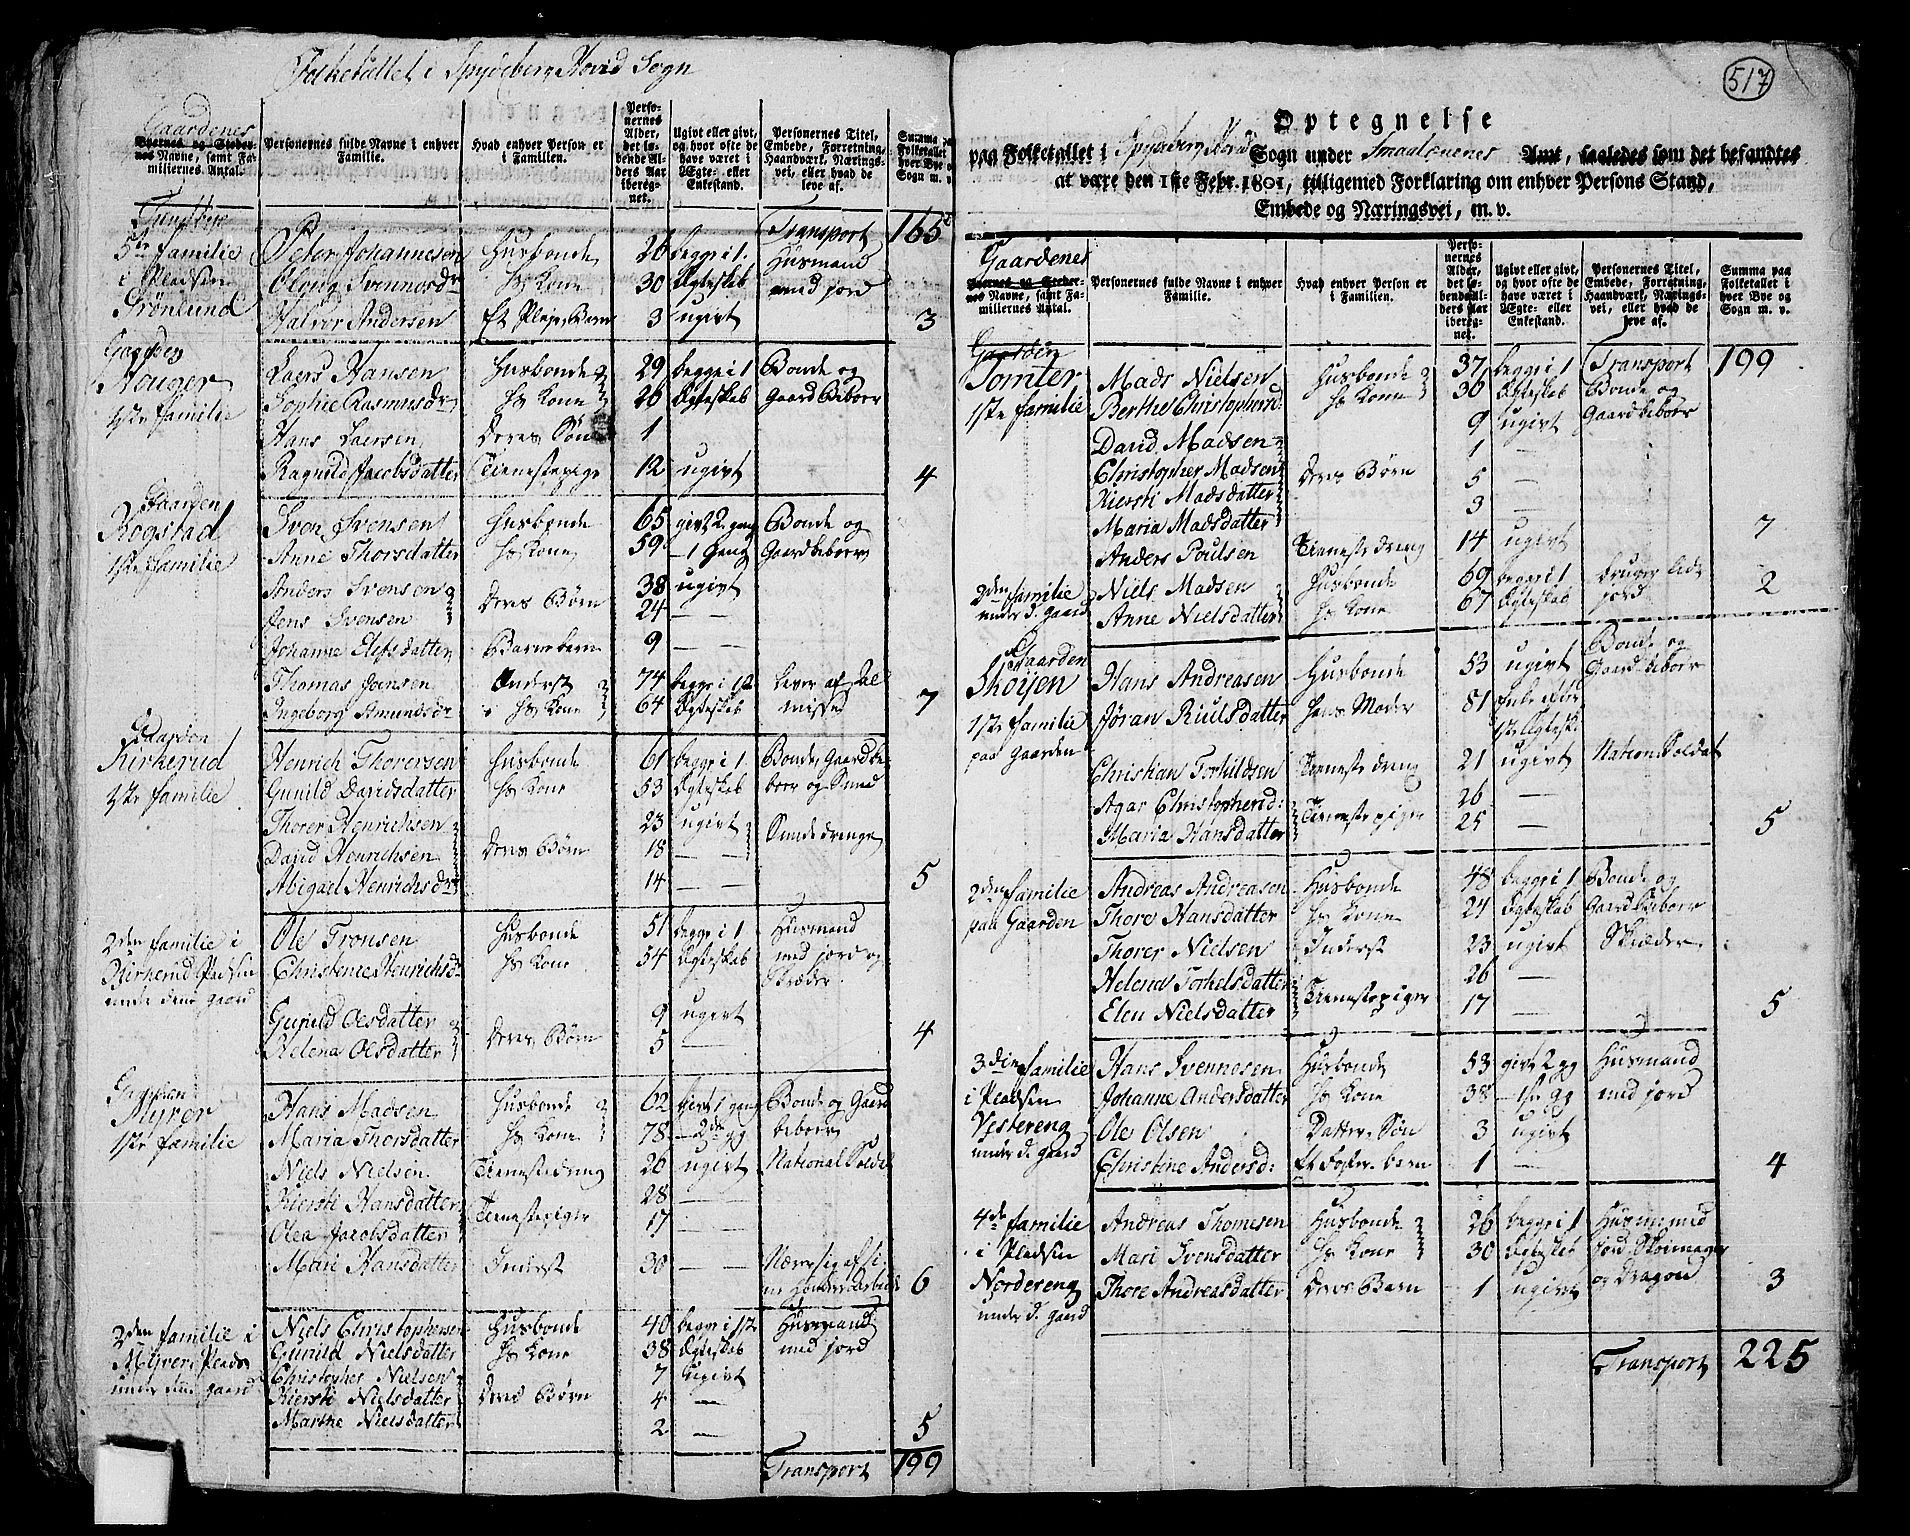 Folketallet i Spydeberg Hovid Sogn
Gaardenes
Byernes og Stedernes Navne, samt Familiernes Antal.
Personernes fulde Navne i enhver Familie.
Hvad enhver Person er i Familien.
Personernes Alder, det løbende Alders Aar iberegnet.
Ugivt eller givt, og hvor ofte de have været i Ægte- eller Enkestand.
Personernes Titel, Embede, Forretning, Haandværk, Næringsvei, eller hvad de leve af.
Summa paa Folketallet i hver Bye og Sogn m. v.
Transport 165
5te familie Peter Johannesen Husbonde 26 begge i 1. Husmand
i Pladsen Oloug Svennesdr Hs Kone 30 Ægteskab med jord
Grønlund Halvor Andersen Et Pleje Barn 3 ugivt 3
Gaarden
Houger Laers Hansen Husbonde 29 begge i 1 Bonde og
1ste familie Sophie Rasmusdr Hs Kone 26 Ægteskab Gaard Beboer
Hans Laersen Deres Søn 1
Ragnild Jacobsdatter Tienestepige 12 ugivt 4
Gaarden
Rogstad Sven Svensen Husbonde 65 givt 2 gang Bonde og
1ste familie Anne Thorsdatter Hs Kone 59 - 1 Gang Gaardbeboer
Anders Svensen 38 ugivt
Jens Svensen Deres Børn 24 —
Johanne Elefsdatter Barnebarn 9 —
Thomas Jansen Inderst 74 begge i 12 lever af Al
Ingeborg Amundsdr Hs Kone 64 Ægteskab misse 7
Gaarden
Kirkerud Henrich Thorersen Husbonde 61 begge i 1 Bonde Gaardbe
1ste familie Gunild Davidsdatter Hs Kone 53 Ægteskab boer og Smed
Thorer Henrichsen 23 ugivt Smededrenge
David Henrichsen Deres Børn 18 —
Abigael Henrichsdr 14 — 5
2den familie i Ole Tronsen Husbonde 51 begge i 1 Husmand
Kirkerud Pladsen Christense Henrichsd: Hs Kone 54 Ægteskab med jord og
under dene gaard Skræder
Gunild Olsdatter 9 ugivt
Helena Olsdatter Deres Børn 5 — 4
Gaarden
Myrer Hans Madsen Husbonde 62 givt 1 gang Bonde og Gaard
1ste familie Maria Thorsdatter Hs Kone 78 — 2de gg beboer
Niels Nielsen Tienestedreng 20 ugivt National Solda
Kiersti Hansdatter 28 —
Olea Jacobsdatter Tienestepiger 17 —
Mari Hansdatter Inderst 30 — Nærer sig af si
ne Hænders Arbeide 6
2den familie i Niels Christophersen Husbonde 40 begge i 12 Husmand
Myrer Plads Gunild Nielsdatter Hs Kone 38 Ægteskab med jord
under dene gaard Christopher Nielsen 7 ugivt
Kiersti Nielsdatter Deres Børn 4 —
Marthe Nielsdatter 2 — 5
Transport 199
517
Optegnelse
paa Folketallet i Spydeberg Hovid Sogn under Smaalenenes Amt, saaledes som det befandtes
at være den 1ste Febr. 1801, tilligemed Forklaring om enhver Persons Stand,
Embede og Næringsvei, m. v.
Gaardenes
Byernes og Stedernes Navne, samt Familiernes Antal.
Personernes fulde Navne i enhver Familie.
Hvad enhver Person er i Familien.
Personernes Alder, det løbende Alders Aar iberegnet.
Ugivt eller givt, og hvor ofte de have været i Ægte- eller Enkestand.
Personernes Titel, Embede, Forretning, Haandværk, Næringsvei, eller hvad de leve af.
Summa paa Folketallet i hver Bye og Sogn m. v.
Gaarden Transport 199
Tomter Mads Nielsen Husbonde 37 begge i 1 Bonde og
1ste familie Berthe Christopherd: Hs Kone 30 Ægteskab Gaardbeboer
David Madsen 9 ugivt
Christopher Madsen Deres Børn 1 —
Kiersti Madsdatter 5 —
Maria Madsdatter 3 —
Anders Poulsen Tieneste dreng 14 ugivt 7
2den familie Niels Madsen Husbonde 69 begge i 1 bruger lidt
under d. gaard Anne Nielsdatter Hs Kone 67 Ægteskab jord 2
Gaarden
Skoijen Hans Andreasen Husbonde 53 ugivt Bonde og Gaardbeboer
1ste familie Jøran Riulsdatter Hans Moder 81 Enke efter
paa Gaarden 1ste Ægtesk.
Christian Torkildsen Tieneste dreng 21 ugivt Nation: Soldat
Agar Christopherd: 26 —
Maria Hansdatter Tienestepiger 25 — 5
2den familie Andreas Andreasen Husbonde 48 begge i 1 Bonde og
paa Gaarden Thore Hansdatter Hs Kone 24 Ægteskab Gaardbeboer
Thorer Nielsen Inderst 23 ugivt Skræder
Helena Torkelsdatter 26 —
Elen Nielsdatter Tienestepiger 17 — 5
3die familie Hans Svennesen Husbonde 53 givt 2 gg Husmand
i Pladsen Johanne Andersdatter Hs Kone 38 - 1ste gg med jord
Vestereng Ole Olsen Datter Søn 3 ugivt
under d. gaard Christine Andersd: Et Foster barn 1 — 4
4de familie Andreas Thomesen Husbonde 26 begge i 1 Husmand med
i Pladsen Mari Svensdatter Hs Kone 30 Ægteskab Jord, Skomager
Nordereng Thore Andreasdatter Deres Barn 1 ugivt og Dragon 3
under d. gaard
Transport 225